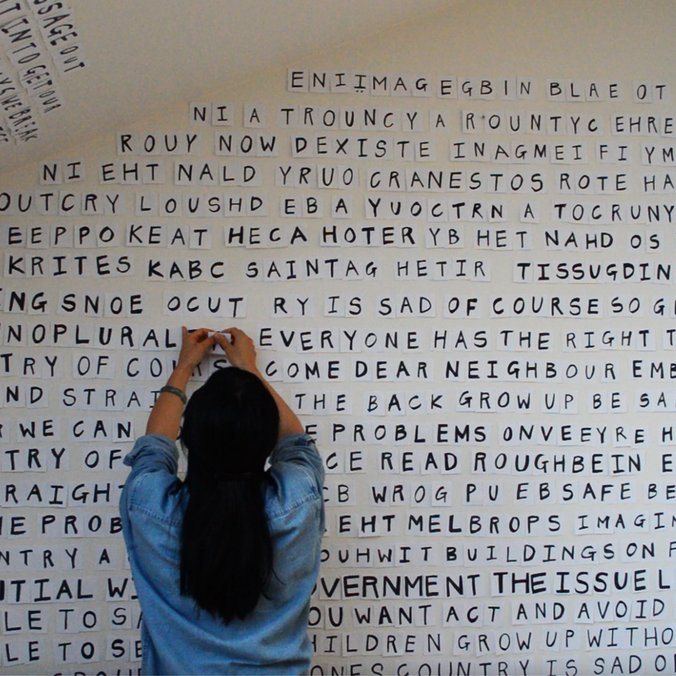 SSAGE OUT
T INTO GET OUR
WE BREAK
ENIIMAG EGBIN BLAE OT
NI A TROUNCY A ROUNTYC EHRE
ROUY NOW DEXISTE INAGMEI FI YM
NI EHT NALD YRUO CRANESTOS ROTE HA
OUTCRY LOUSHD EB A YUOCTRN A TOCRUNY
EEPPO KEAT HECA HOTER YB HET NAHD OS
KRITES KABC SAINTAG HETIR TISSUGDIN
NG SNOE OCUT RY IS SAD OF COURSE SO G
NOPLURAL EVERYONE HAS THE RIGHT T
TRY OF CO COME DEAR NEIGHBOUR EMB
ND STRAI THE BACK GROW UP BE SA
WE CAN E PROBLEMS ONVEEYRE H
TRY OF CE READ ROUGHBEIN E
RAIGHT CB WROG PU EB SAFE BE
E PROB EHT MELBROPS IMAGIN
NTRY A OUHWIT BUILDINGS ON F
UTIAL W VERNMENT THE ISSUE L
LE TO SA OU WANT ACT AND AVOID
LE TO SE HILDREN GROW UP WITHO
GROU ONES COUNTRY IS SAD O